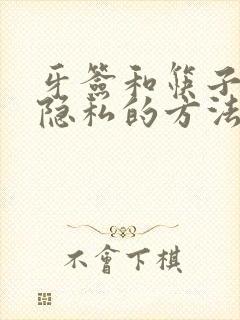 牙签和筷子
隐私的方法
不會下棋